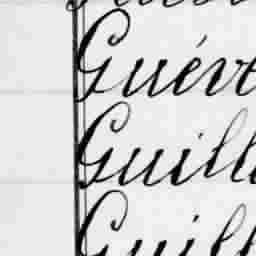 Guéve
Guill
Guill